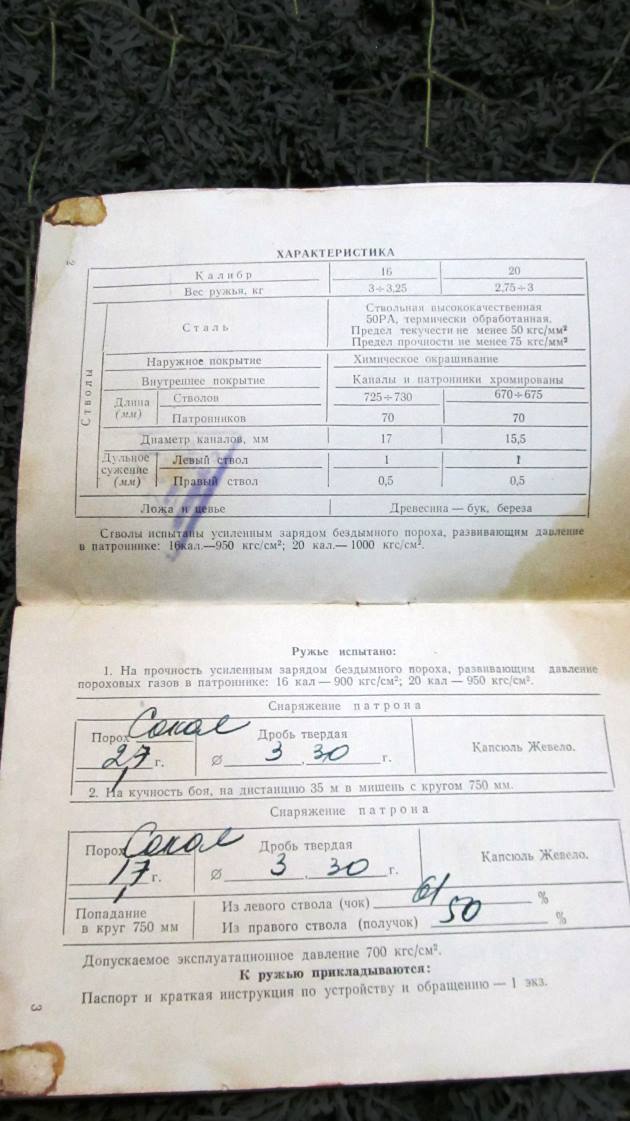 2
ХАРАКТЕРИСТИКА
Калибр 16 20
Вес ружья, кг 3÷3,25 2,75÷3
Стволы
Сталь Ствольная высококачественная
50РА, термически обработанная.
Предел текучести не менее 50 кгс/мм²
Предел прочности не менее 75 кгс/мм²
Наружное покрытие Химическое окрашивание
Внутреннее покрытие Каналы и патронники хромированы
Длина (мм) Стволов 725÷730 670÷675
Патронников 70 70
Диаметр каналов, мм 17 15,5
Дульное сужение (мм) Левый ствол 1 1
Правый ствол 0,5 0,5
Ложа и цевье Древесина — бук, береза
Стволы испытаны усиленным зарядом бездымного пороха, развивающим давление
в патроннике: 16кал.—950 кгс/см²; 20 кал.— 1000 кгс/см².
Ружье испытано:
1. На прочность усиленным зарядом бездымного пороха, развивающим давление
пороховых газов в патроннике: 16 кал — 900 кгс/см²; 20 кал — 950 кгс/см².
Снаряжение патрона
Порох Сокол Дробь твердая
2,7 г. ∅ 3, 30 г. Капсюль Жевело.
2. На кучность боя, на дистанцию 35 м в мишень с кругом 750 мм.
Снаряжение патрона
Порох Сокол Дробь твердая
1,7 г. ∅ 3, 30 г. Капсюль Жевело.
Попадание
в круг 750 мм
Из левого ствола (чок) 61 %
Из правого ствола (получок) 50 %
Допускаемое эксплуатационное давление 700 кгс/см².
К ружью прикладываются:
Паспорт и краткая инструкция по устройству и обращению — 1 экз.
3